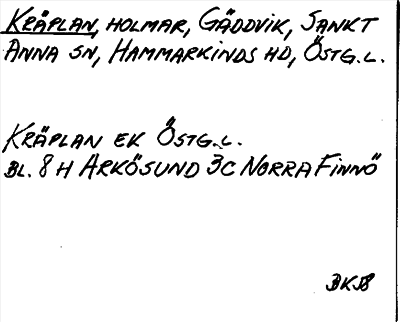 KRÄPLAN, HOLMAR, GÄDDVIK, SANKT
ANNA SN, HAMMARKINDS HD, ÖSTG.L.
KRÄPLAN EK ÖSTG.L.
BL. 8 H ARKÖSUND 3C NORRA FINNÖ